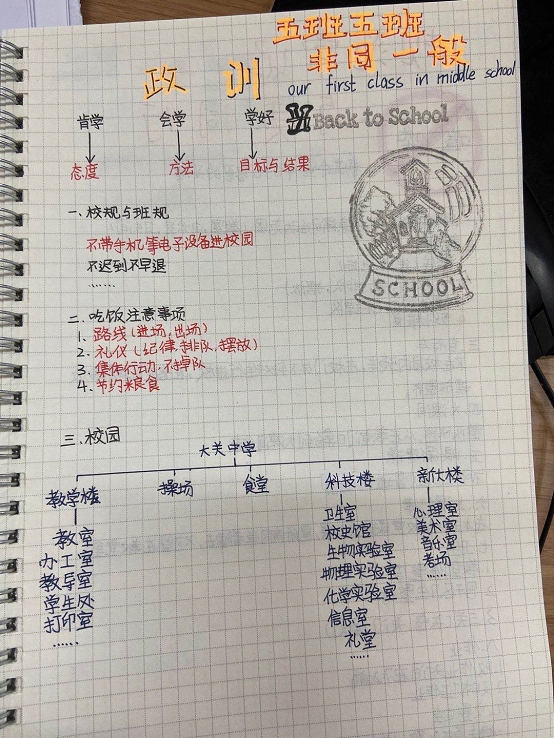 五班五班
非同一般
政训
our first class in middle school
Back to School
肯学 会学 学好
态度 方法 目标与结果
SCHOOL
一、校规与班规
不带手机等电子设备进校园
不迟到不早退
……
二、吃饭注意事项
1. 路线(进场,出场)
2. 礼仪(纪律,排队,摆放)
3. 集体行动,不掉队
4. 节约粮食
三、校园
大关中学
教学楼 操场 食堂 科技楼 新伙楼
教室
办工室
教导室
学生处
打印室
……
卫生室
校史馆
生物实验室
物理实验室
化学实验室
信息室
礼堂
……
心理室
美术室
音乐室
考场
……